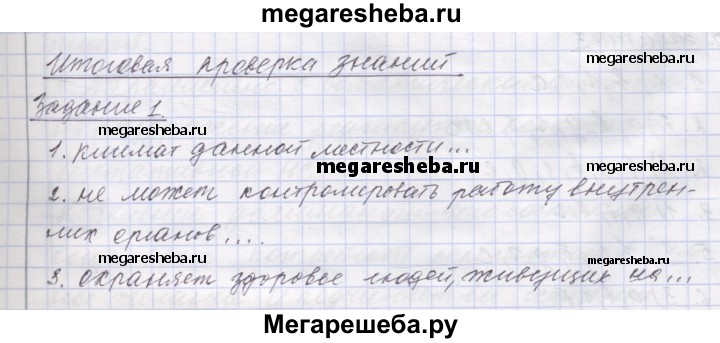 megaresheba.ru
Итоговая проверка знаний
megaresheba.ru
Задание 1.
megaresheba.ru
1. климат данной местности...
megaresheba.ru
2. не может контролировать работу внутрен-
них органов....
megaresheba.ru
megaresheba.ru
3. охраняет здоровье людей, живущих на...
Мегарешеба.ру